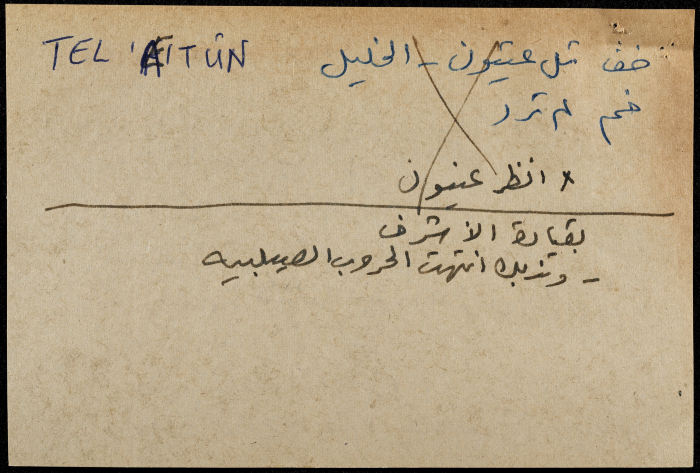 TEL 'AITÛN
خف تل عيتون - الخليل
فحم لم ترد
× انظر عيتون
بقيادة الأشرف
- وبذلك انتهت الحروب الصليبيه